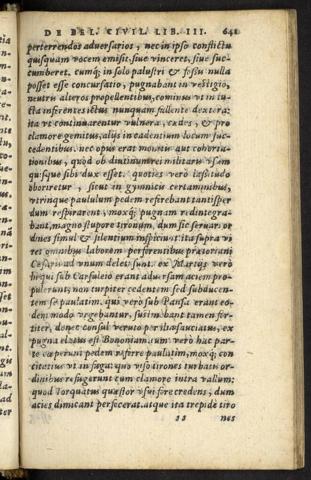 DE BEL. CIVIL. LIB. III. 641
perterrendos aduersarios, nec in ipso conflictu
quisquam vocem emisit, siue vinceret, siue suc-
cumberet. cumq́; in solo palustri & fossu nulla
posset esse concursatio, pugnabant in vestigio,
neutris alteros propellentibus, cominus vt in lu-
cta inferentes ictus nunquam fallente dextera:
ita vt continuarentur vulnera, cædes, & pro
clamore gemitus, alijs in cadentium locum suc-
cedentibus. nec opus erat monitu aut cohorta-
tionibus, quòd ob diutinum rei militaris vsum
quisque sibi dux esset. quoties verò lassitudo
oboriretur, sicut in gymnicis certaminibus,
vtrinque paululum pedem referebant tantisper
dum respirarent, moxq́; pugnam redintegra-
bant, magno stupore tironum, dum sic seruari or
dines simul & silentium inspiciunt. ita supra vi
res omnibus laborem perferentibus prætoriani
Cæsaris ad vnum deleti sunt. ex Martijs verò
hi qui sub Carsuleio erant aduersam aciem pro-
pulerunt, non turpiter cedentem sed subducen-
tem se paulatim. qui verò sub Pansa erant eo-
dem modo vrgebantur. sustinebant tamen for-
titer, donec consul veruto per ilia sauciatus, ex
pugna elatus est Bononiam. tum verò hac par-
te cœperunt pedem referre paulatim, moxq́; con
citatius vt in fuga: quo viso tirones turbatis or-
dinibus refugerunt cum clamore intra vallum:
quod Torquatus quæstor vsui fore credens, dum
acies dimicant perfecerat. atque ita trepidè tiro
ss nes